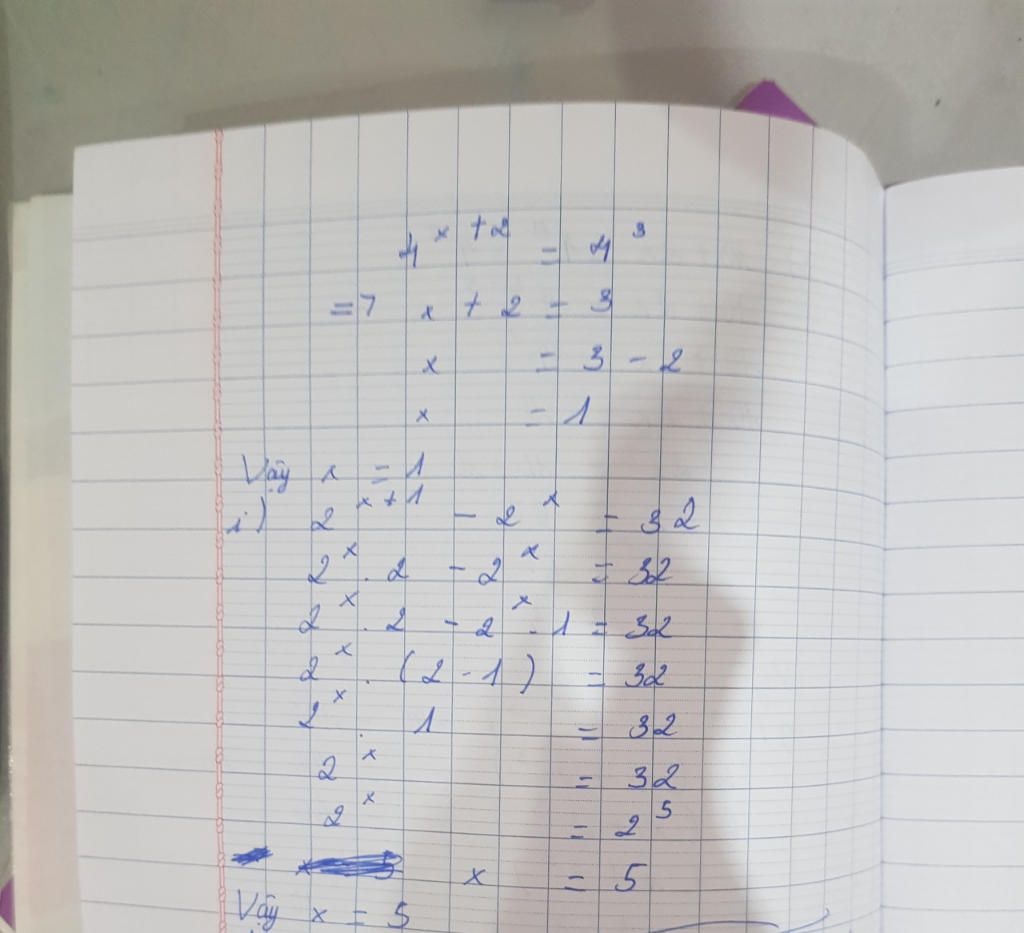 4^(x+2) = 4^3
=> x + 2 = 3
x = 3 - 2
x = 1
Vậy x = 1
i) 2^(x+1) - 2^x = 32
2^x . 2 - 2^x = 32
2^x . 2 - 2^x . 1 = 32
2^x . (2 - 1) = 32
2^x . 1 = 32
2^x = 32
2^x = 2^5
x = 5
Vậy x = 5